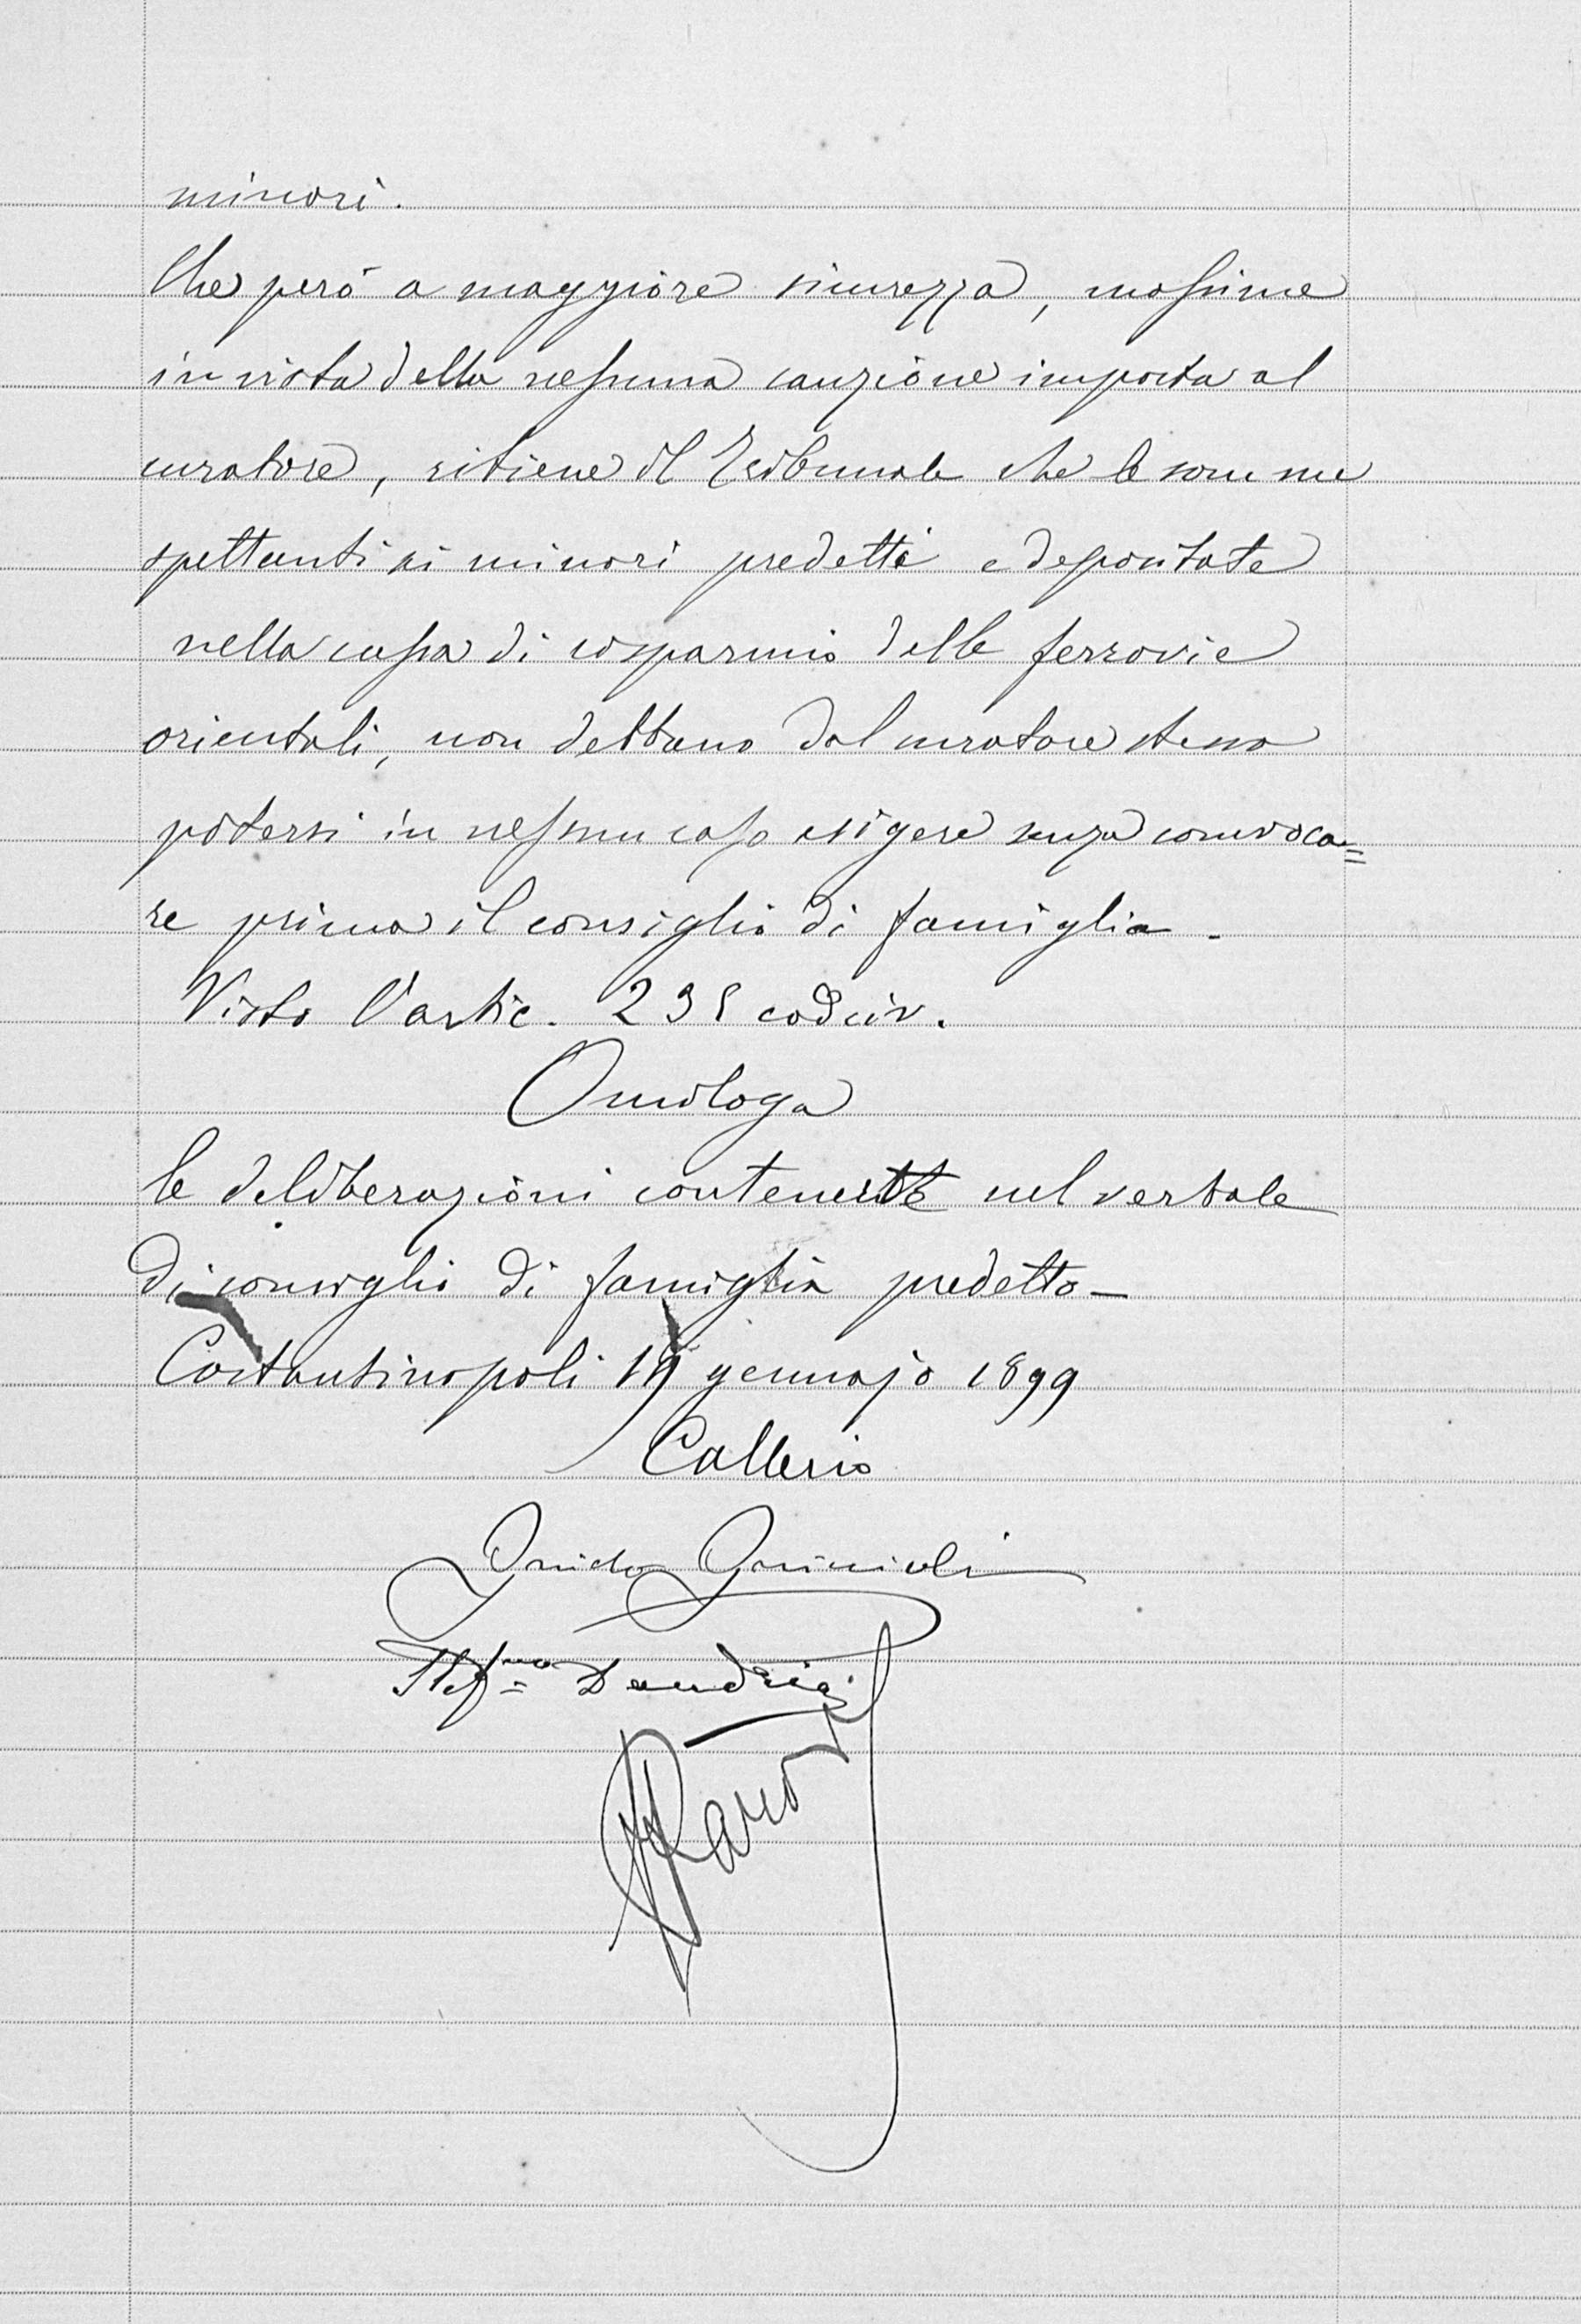 minori.
Che però a maggiore sicurezza, massime
in vista della nessuna cauzione imposta al
curatore, ritiene il Tribunale che le somme
spettanti ai minori predetti e depositate
nella cassa di risparmio delle ferrovie
orientali, non debbano dal curatore stesso
potersi in nessun caso esigere senza convoca=
re prima il consiglio di famiglia.
Visto l'artic. 235 cod civ.
Omologa
le deliberazioni contenute nel verbale
di consiglio di famiglia predetto—
Costantinopoli 19 gennajo 1899
Callerio
Guido
Stef.no Dandria